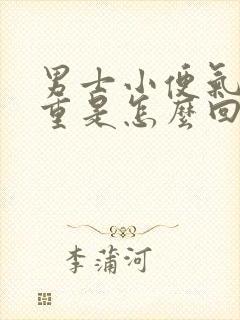 男士小便氣
重是怎麼回
李蒲河